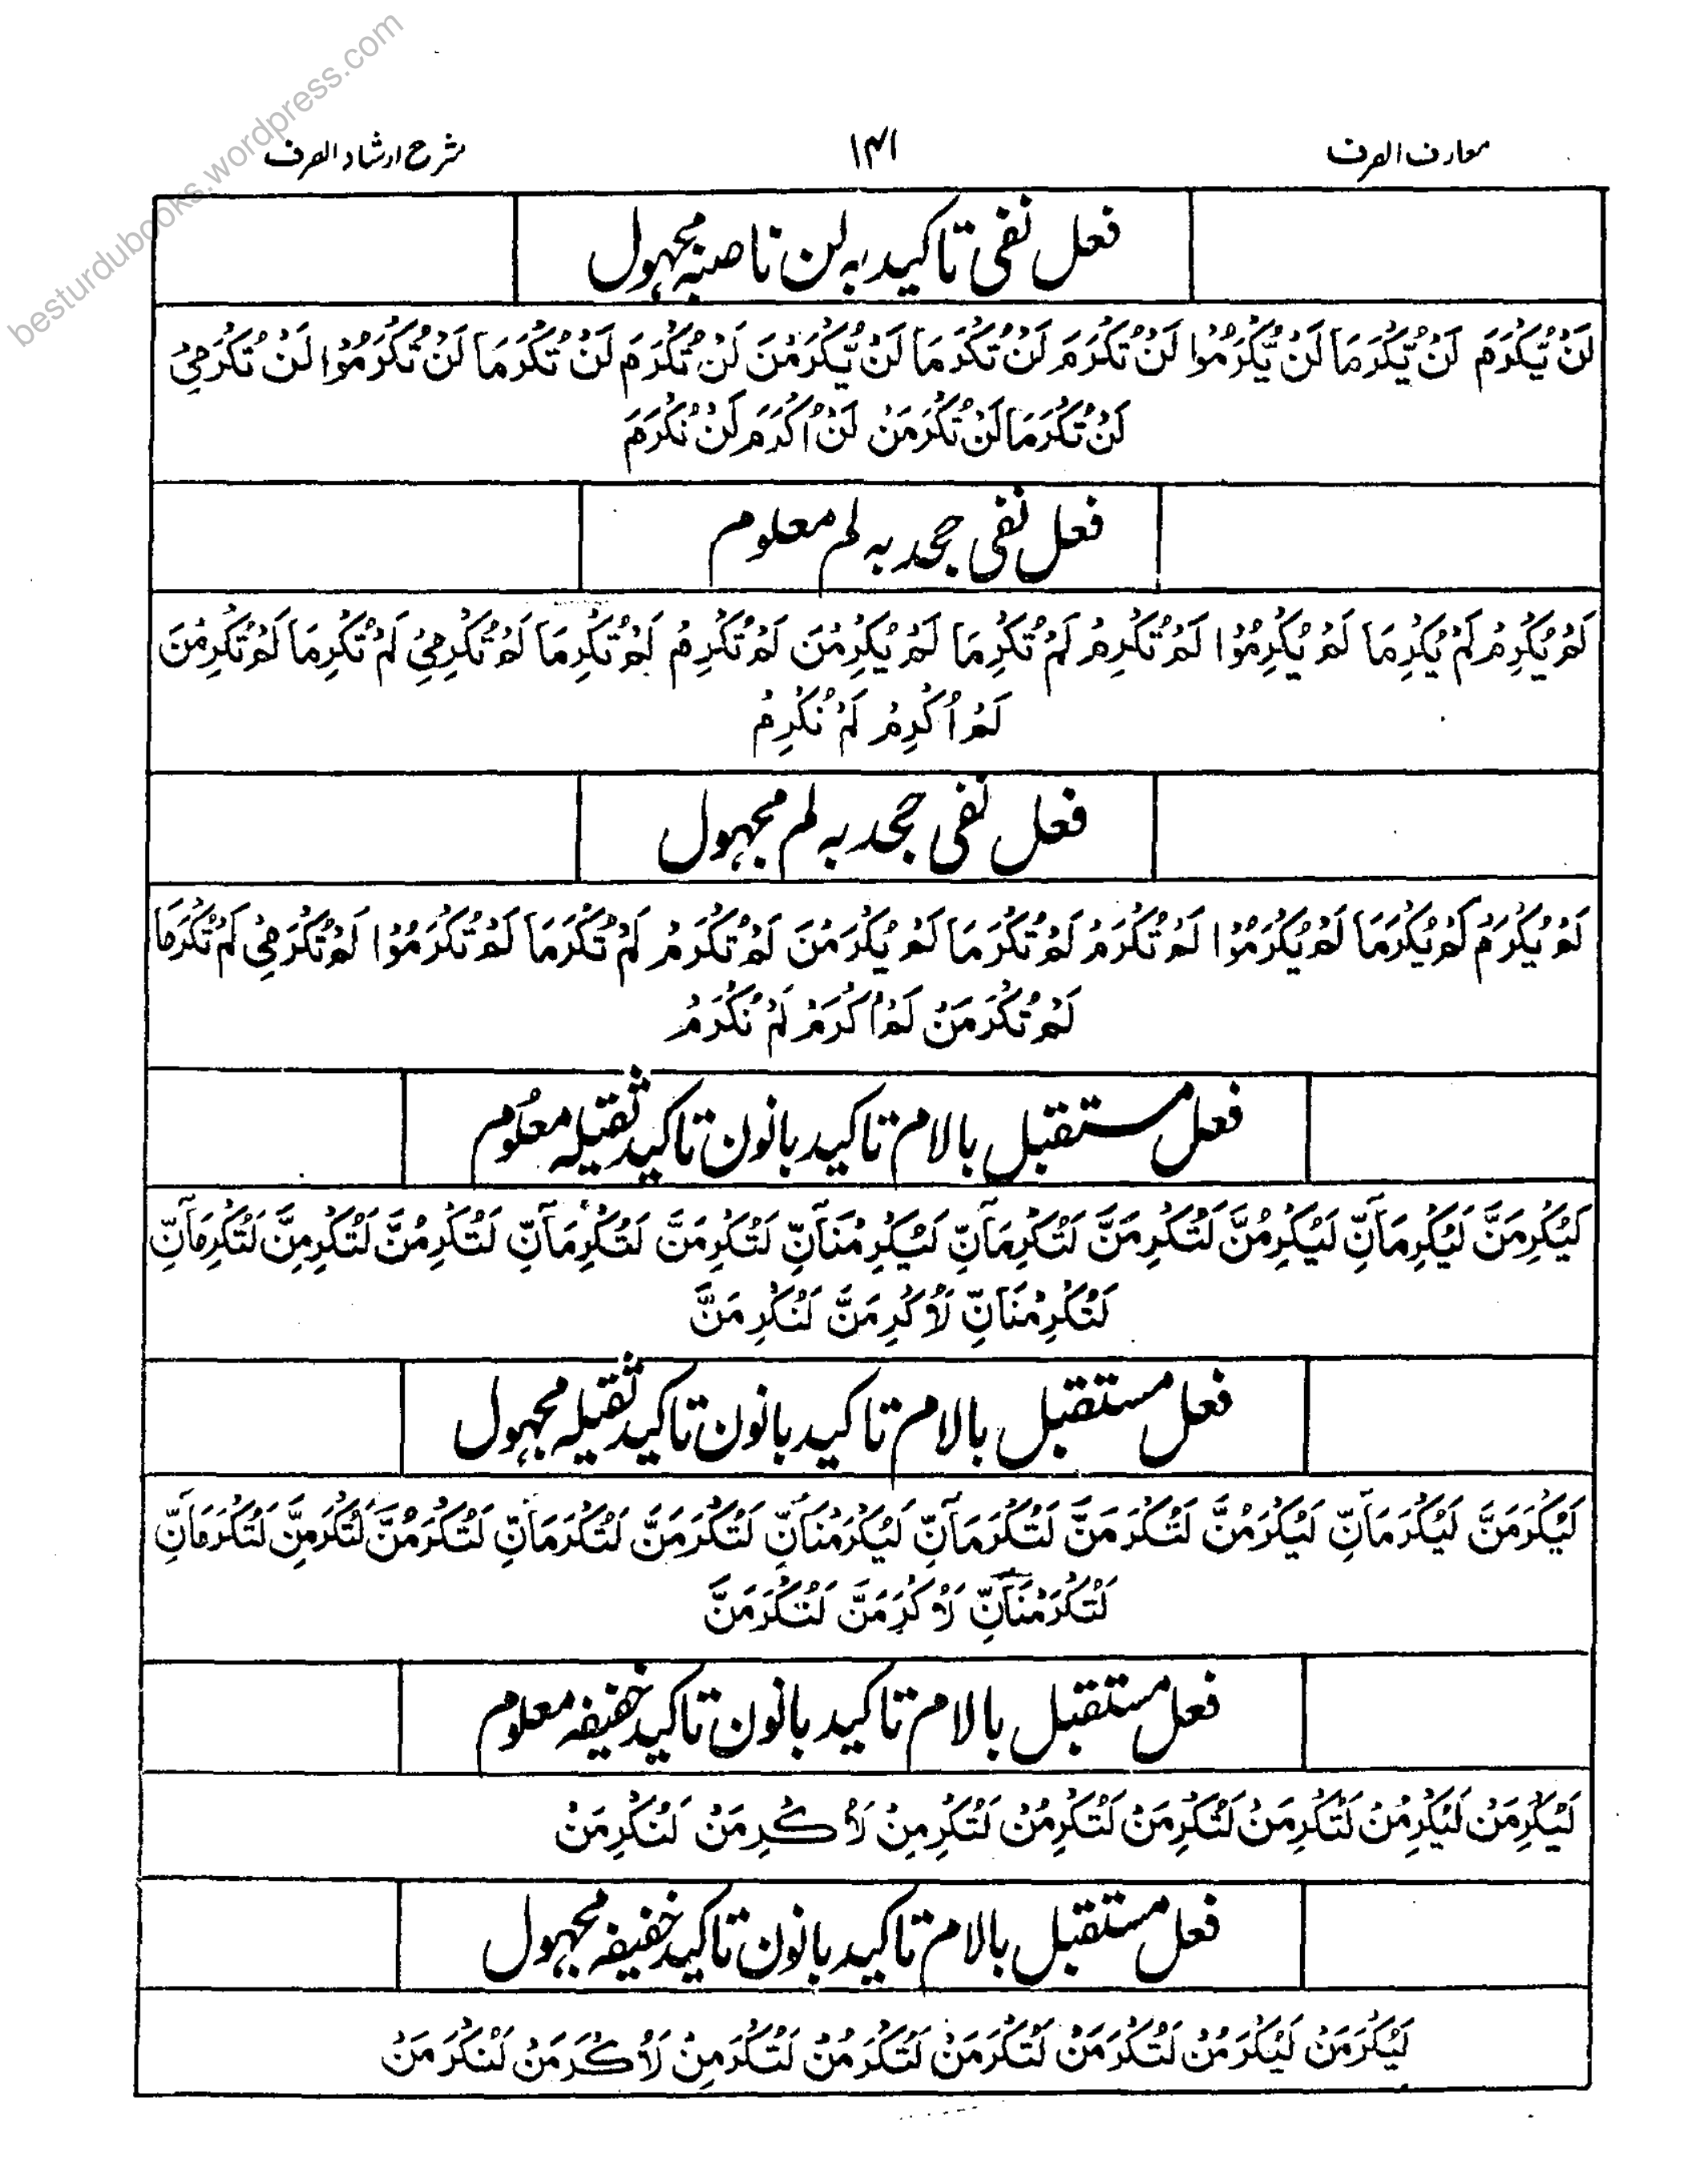 besturdubooks.wordpress.com
معارف الصرف ۱۴۱ شرح ارشاد الصرف
فعل نفی تاکید بہ لن ناصبہ مجہول
لَنْ يُّكْرَمَ لَنْ يُّكْرَمَا لَنْ يُّكْرَمُوْا لَنْ تُكْرَمَ لَنْ تُكْرَمَا لَنْ يُّكْرَمْنَ لَنْ تُكْرَمَ لَنْ تُكْرَمَا لَنْ تُكْرَمُوْا لَنْ تُكْرَمِيْ
لَنْ تُكْرَمَا لَنْ تُكْرَمْنَ لَنْ اُكْرَمَ لَنْ نُكْرَمَ
فعل نفی جحد بہ لم معلوم
لَمْ يُكْرِمْ لَمْ يُكْرِمَا لَمْ يُكْرِمُوْا لَمْ تُكْرِمْ لَمْ تُكْرِمَا لَمْ يُكْرِمْنَ لَمْ تُكْرِمْ لَمْ تُكْرِمَا لَمْ تُكْرِمِيْ لَمْ تُكْرِمَا لَمْ تُكْرِمْنَ
لَمْ اُكْرِمْ لَمْ نُكْرِمْ
فعل نفی جحد بہ لم مجہول
لَمْ يُكْرَمْ لَمْ يُكْرَمَا لَمْ يُكْرَمُوْا لَمْ تُكْرَمْ لَمْ تُكْرَمَا لَمْ يُكْرَمْنَ لَمْ تُكْرَمْ لَمْ تُكْرَمَا لَمْ تُكْرَمُوْا لَمْ تُكْرَمِيْ لَمْ تُكْرَمَا
لَمْ تُكْرَمْنَ لَمْ اُكْرَمْ لَمْ نُكْرَمْ
فعل مستقبل بالام تاکید بانون تاکید ثقیلہ معلُوم
لَيُكْرِمَنَّ لَيُكْرِمَآنِّ لَيُكْرِمُنَّ لَتُكْرِمَنَّ لَتُكْرِمَآنِّ لَيُكْرِمْنَآنِّ لَتُكْرِمَنَّ لَتُكْرِمَآنِّ لَتُكْرِمُنَّ لَتُكْرِمِنَّ لَتُكْرِمَآنِّ
لَتُكْرِمْنَآنِّ لَاُكْرِمَنَّ لَنُكْرِمَنَّ
فعل مستقبل بالام تاکید بانون تاکید ثقیلہ مجہول
لَيُكْرَمَنَّ لَيُكْرَمَآنِّ لَيُكْرَمُنَّ لَتُكْرَمَنَّ لَتُكْرَمَآنِّ لَيُكْرَمْنَآنِّ لَتُكْرَمَنَّ لَتُكْرَمَآنِّ لَتُكْرَمُنَّ لَتُكْرَمِنَّ لَتُكْرَمَآنِّ
لَتُكْرَمْنَآنِّ لَاُكْرَمَنَّ لَنُكْرَمَنَّ
فعل مستقبل بالام تاکید بانون تاکید خفیفہ معلوم
لَيُكْرِمَنْ لَيُكْرِمُنْ لَتُكْرِمَنْ لَتُكْرِمَنْ لَتُكْرِمُنْ لَتُكْرِمِنْ لَاُكْرِمَنْ لَنُكْرِمَنْ
فعل مستقبل بالام تاکید بانون تاکید خفیفہ مجہول
لَيُكْرَمَنْ لَيُكْرَمُنْ لَتُكْرَمَنْ لَتُكْرَمَنْ لَتُكْرَمُنْ لَتُكْرَمِنْ لَاُكْرَمَنْ لَنُكْرَمَنْ